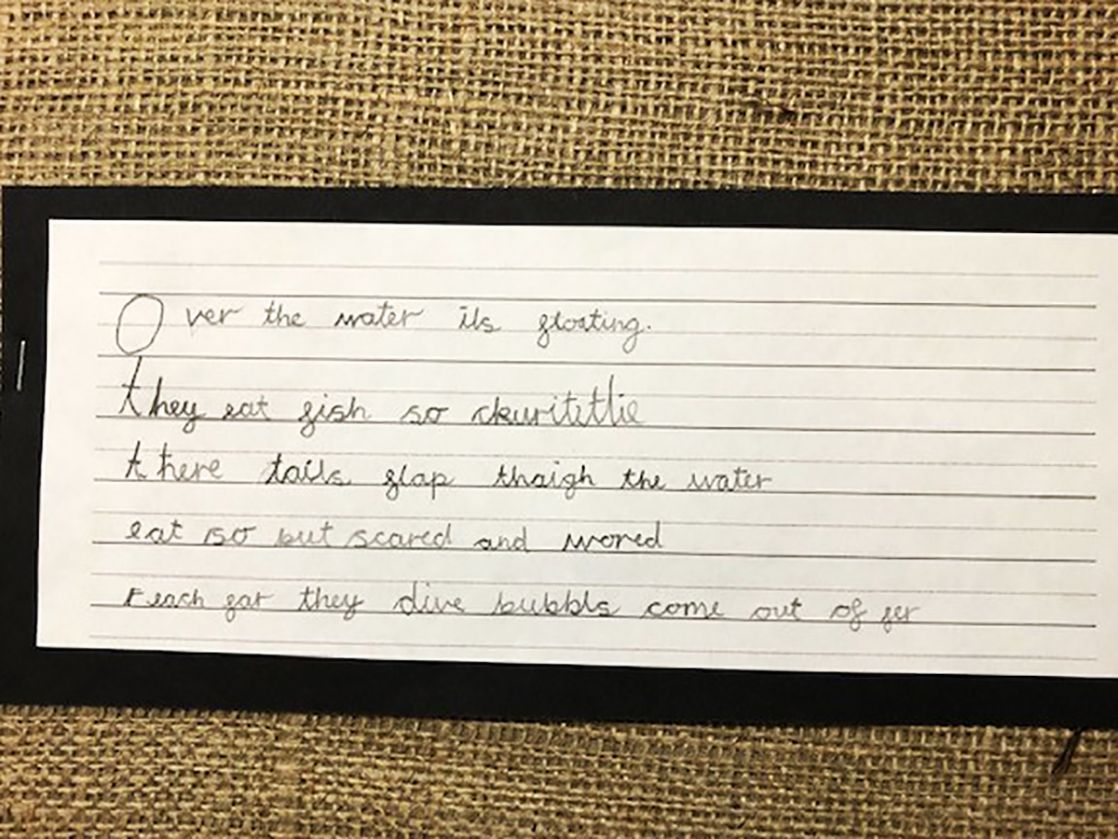 Over the water its floating.
they eat fish so
there tails flap thaigh the water
eat so but scared and wored
reach far they dive bubbls come out of fer